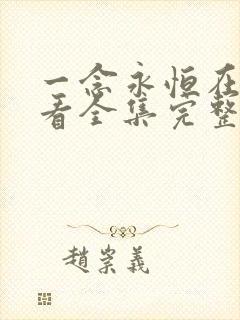 一念永恒在
看全集完整
趙崇義